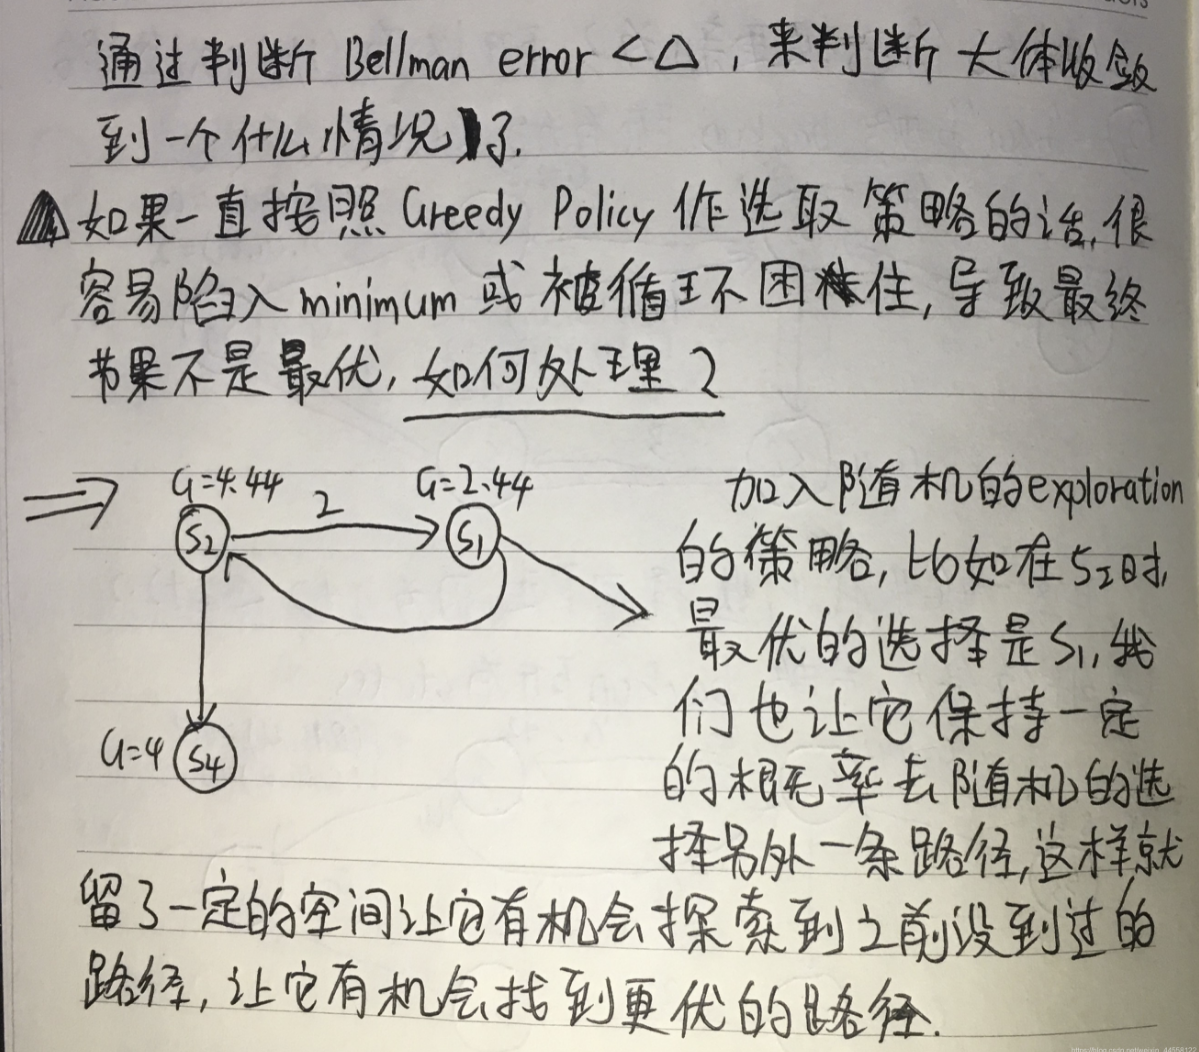 通过判断 Bellman error <△, 来判断大体收敛
到一个什么情况了.
如果一直按照 Greedy Policy 作选取策略的话, 很
容易陷入 minimum 或被循环困住, 导致最终
节果不是最优, 如何处理?
G=4.44
2
G=2.44
S2
S1
G=4
S4
加入随机的exploration
的策略, 比如在S2时,
最优的选择是S1, 我
们也让它保持一定
的概率去随机的选
择另外一条路径, 这样就
留了一定的空间让它有机会探索到之前没到过的
路径, 让它有机会找到更优的路径.